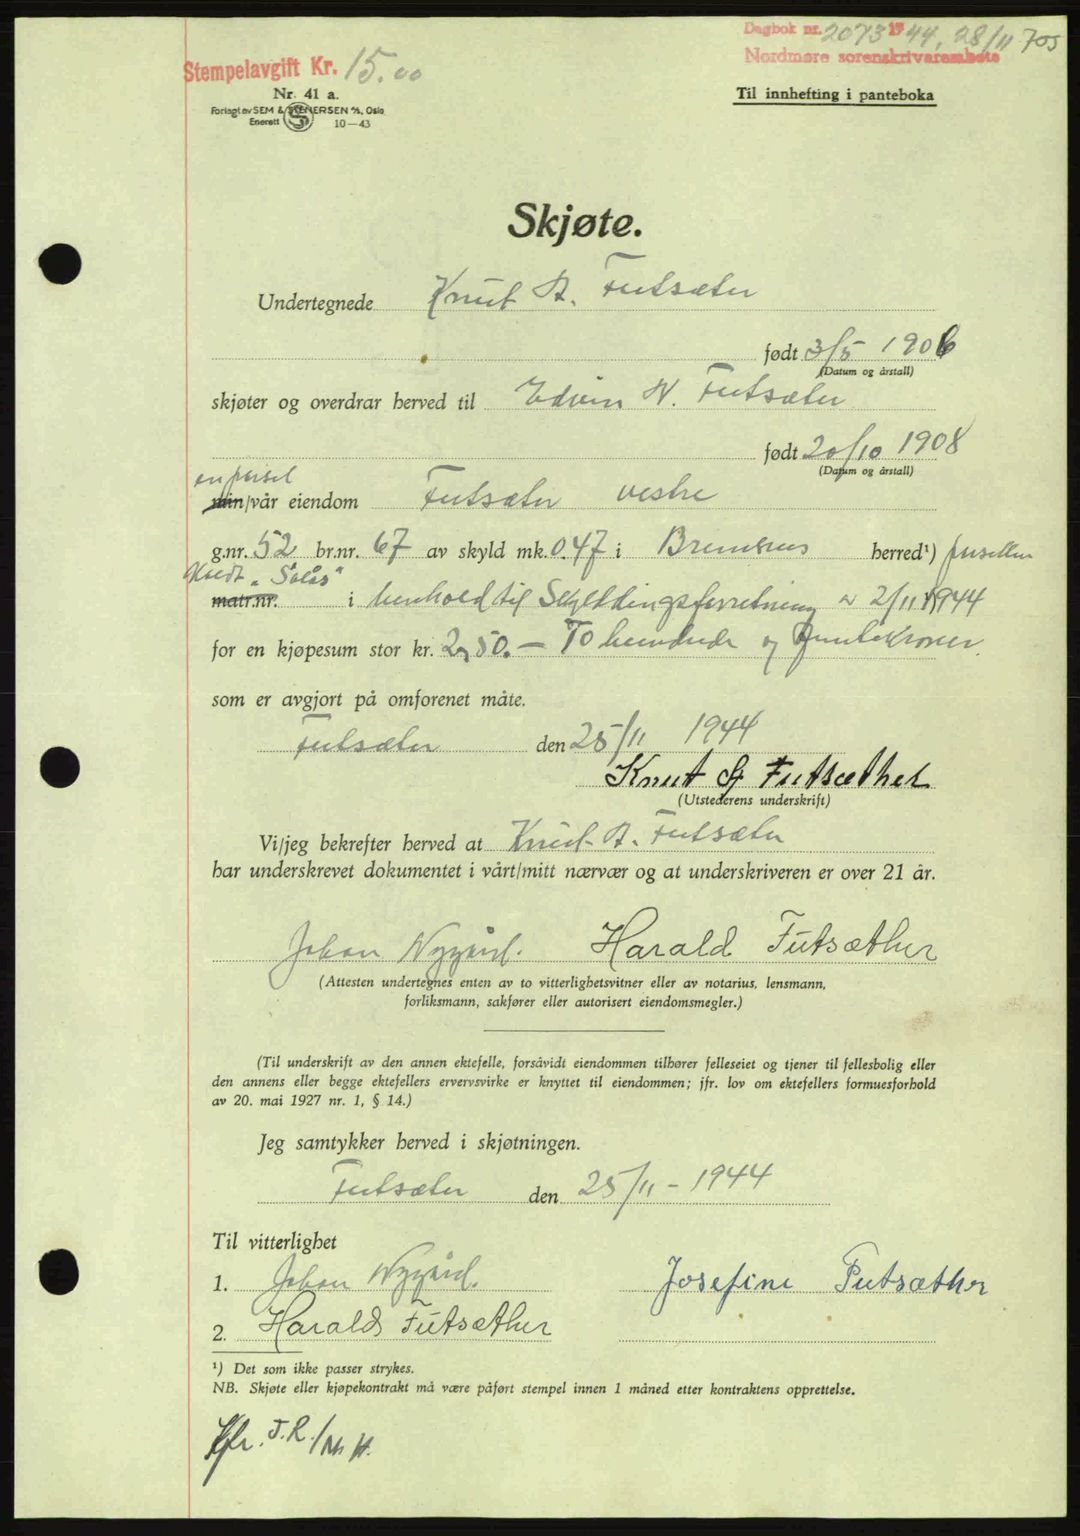 Dagbok nr. 2073 1944, 28/11 705
Nordmøre sorenskriverembete
Stempelavgift Kr. 15.00
Nr. 41 a.
Forlagt av SEM & STENERSEN A/S, Oslo
Enerett 10—43
Til innhefting i panteboka
Skjøte.
Undertegnede Knut A. Futsæter
født 3/5 1906
(Datum og årstall)
skjøter og overdrar herved til Edvin N. Futsæter
født 20/10 1908
(Datum og årstall)
en parsel
min/vår eiendom Futsæter vestre
g.nr. 52 br.nr. 67 av skyld mk. 0.47 i Bremsnes herred¹) parsellen
kaldt „Solås“
matr.nr. i henhold til Skylddelingsforretning av 2/11 1944
for en kjøpesum stor kr. 250.— To hundrede og femti kroner.
som er avgjort på omforenet måte.
Futsæter den 25/11 1944
Knut A Futsæther
(Utstederens underskrift)
Vi/jeg bekrefter herved at Knut A. Futsæter
har underskrevet dokumentet i vårt/mitt nærvær og at underskriveren er over 21 år.
Johan Nygård. Harald Futsæther
(Attesten undertegnes enten av to vitterlighetsvitner eller av notarius, lensmann,
forliksmann, sakfører eller autorisert eiendomsmegler.)
(Til underskrift av den annen ektefelle, forsåvidt eiendommen tilhører felleseiet og tjener til fellesbolig eller
den annens eller begge ektefellers ervervsvirke er knyttet til eiendommen; jfr. lov om ektefellers formuesforhold
av 20. mai 1927 nr. 1, § 14.)
Jeg samtykker herved i skjøtningen.
Futsæter den 25/11 - 1944
Til vitterlighet
1. Johan Nygård. Josefine Futsæther
2. Harald Futsæther
¹) Det som ikke passer strykes.
NB. Skjøte eller kjøpekontrakt må være påført stempel innen 1 måned etter kontraktens opprettelse.
J.R./